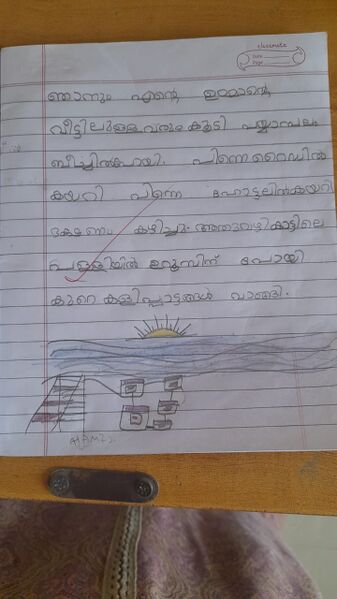 classmate
Date
Page
ഞാനും എന്റെ ഉമ്മാന്റെ
വീട്ടിലുള്ളവരും കൂടി പയ്യാമ്പലം
ബീച്ചിൽപോയി. പിന്നെ റൈഡിൽ
കയറി പിന്നെ ഹോട്ടലിൽകയറി
ഭക്ഷണം കഴിച്ചു. അതുവഴി കാട്ടിലെ
പള്ളിയിൽ ഉറൂസിന് പോയി
കുറെ കളിപ്പാട്ടങ്ങൾ വാങ്ങി.